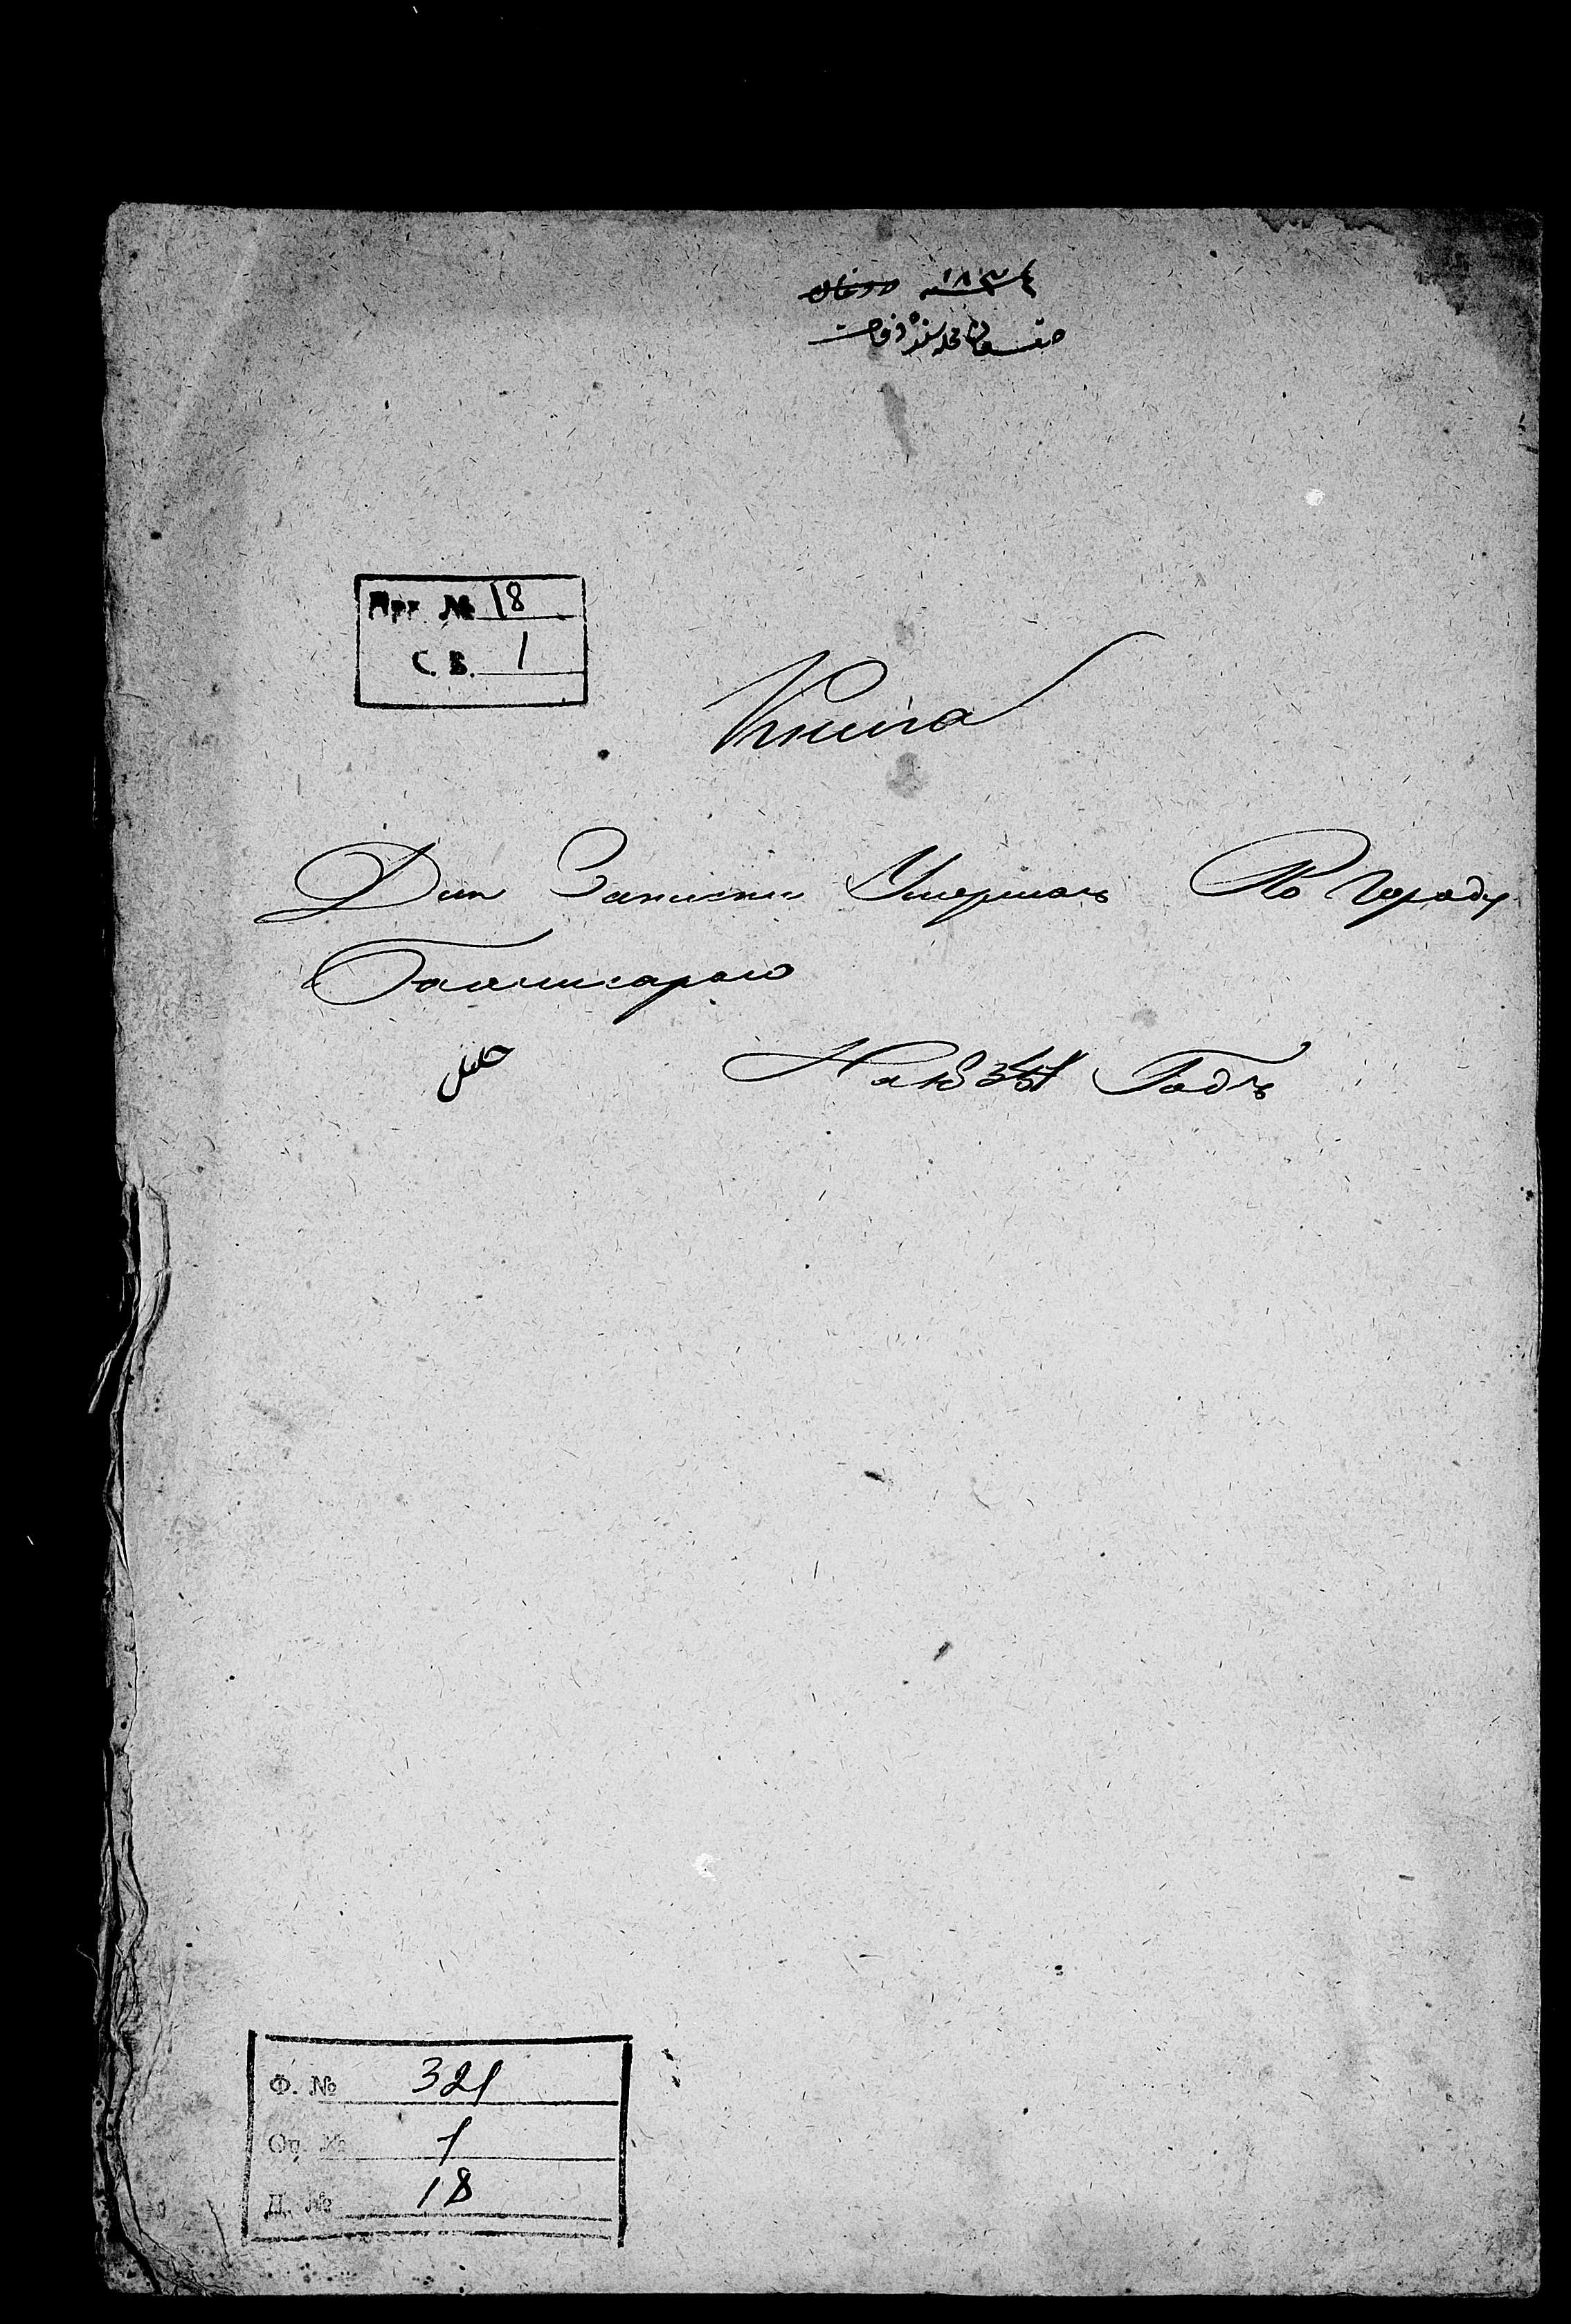 ١٨٣٤
Арх № 18
С. В. 1
Книга
Для Записки Умершихъ По городу
Бахчисараю
На 1834 Годъ
Ф. № 321
Оп. № 1
Д. № 18